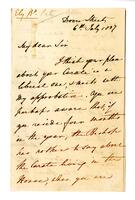 Dover Street,
6th July 1837
My dear Sir
I think your plan
about your Curate is a
one, & meets with
my approbation. You are
perhaps aware that, if
you reside four months
in the year, the Bishop
has nothing to say about
the Curate living in the
House, when you are